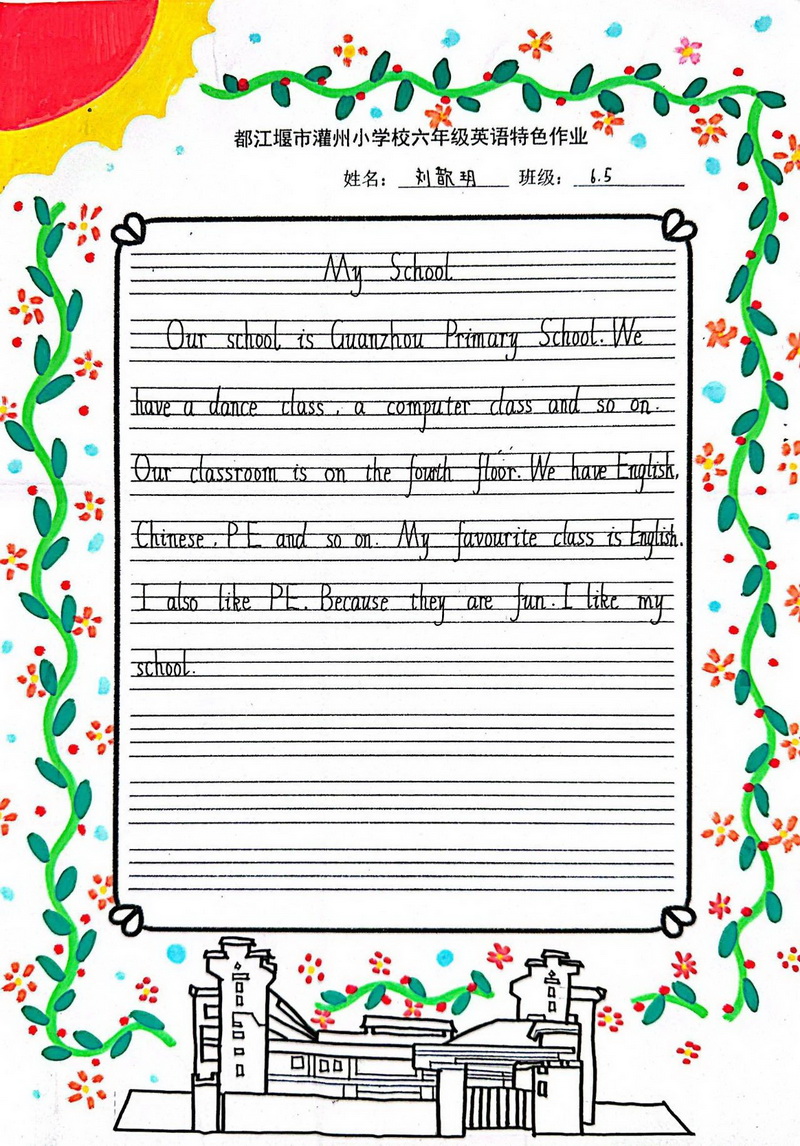 都江堰市灌州小学校六年级英语特色作业
姓名: 刘歆玥 班级: 6.5
My School
Our school is Guanzhou Primary School. We
have a dance class, a computer class and so on.
Our classroom is on the fourth floor. We have English,
Chinese, PE and so on. My favourite class is English.
I also like PE. Because they are fun. I like my
school.